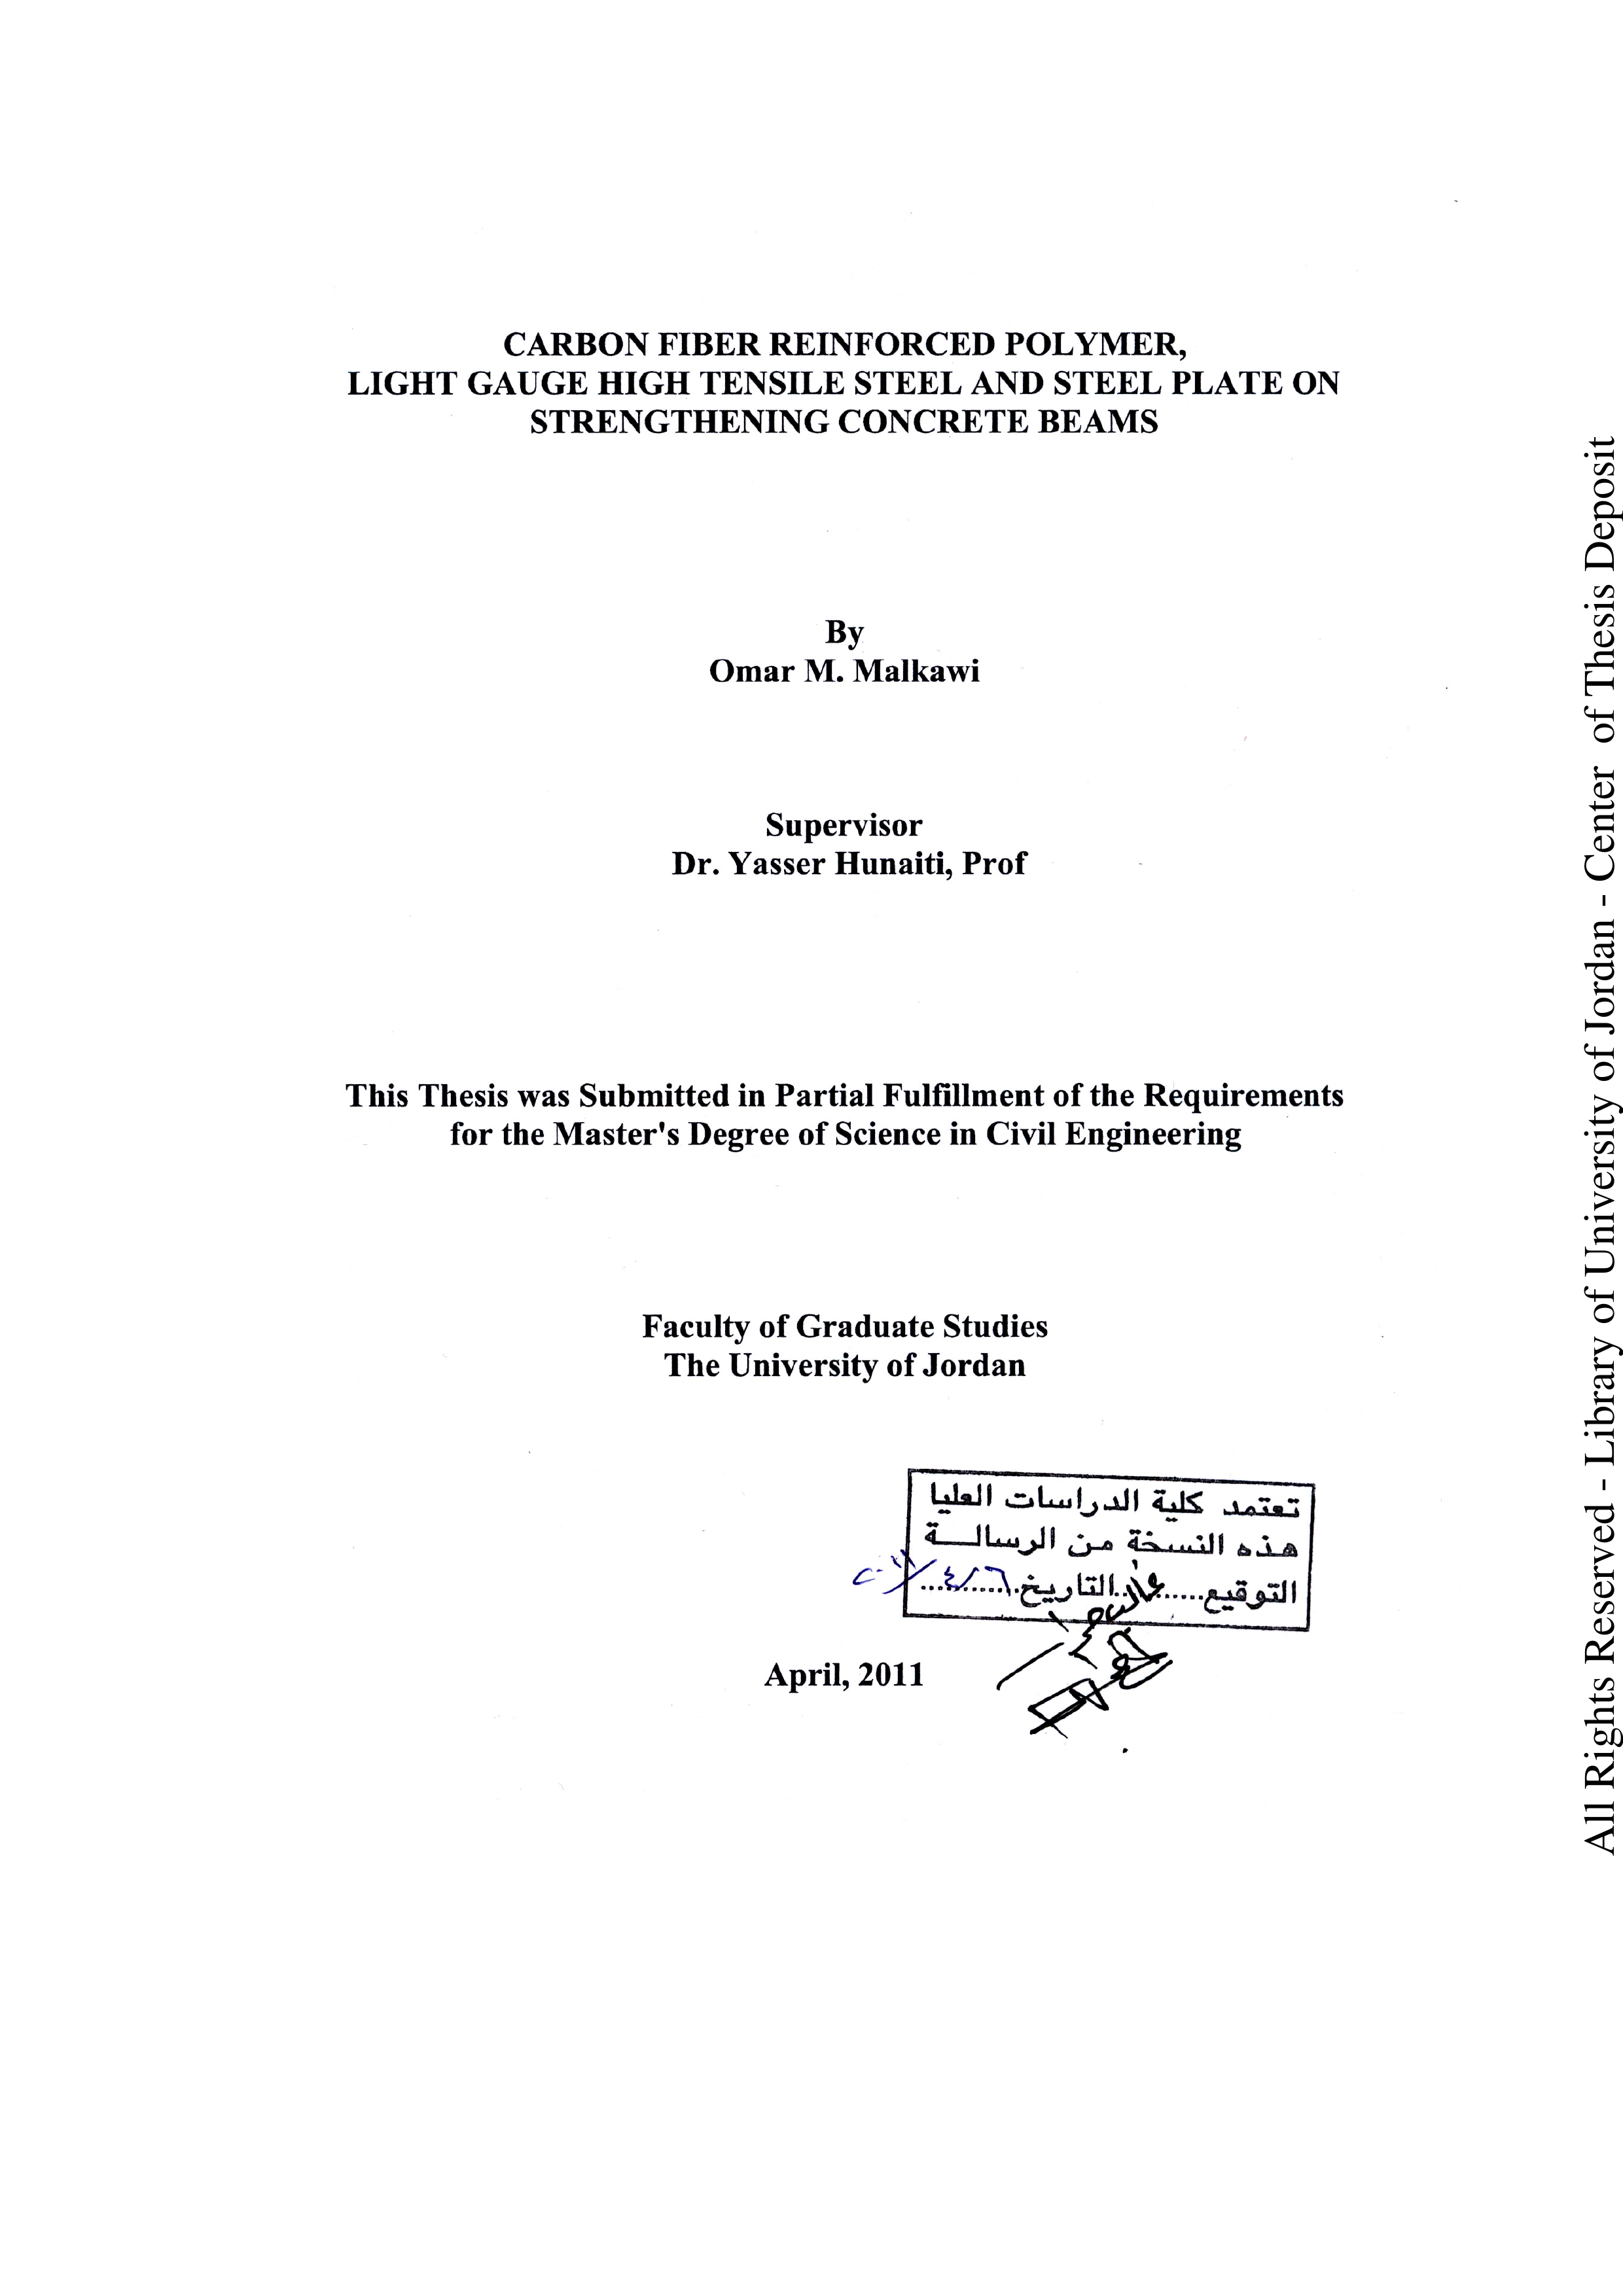 CARBON FIBER REINFORCED POLYMER,
LIGHT GAUGE HIGH TENSILE STEEL AND STEEL PLATE ON
STRENGTHENING CONCRETE BEAMS
By
Omar M. Malkawi
Supervisor
Dr. Yasser Hunaiti, Prof
This Thesis was Submitted in Partial Fulfillment of the Requirements
for the Master's Degree of Science in Civil Engineering
Faculty of Graduate Studies
The University of Jordan
تعتمد كلية الدراسات العليا
هذه النسخة من الرسالـــة
التوقيع..........التاريخ..........
April, 2011
All Rights Reserved - Library of University of Jordan - Center of Thesis Deposit